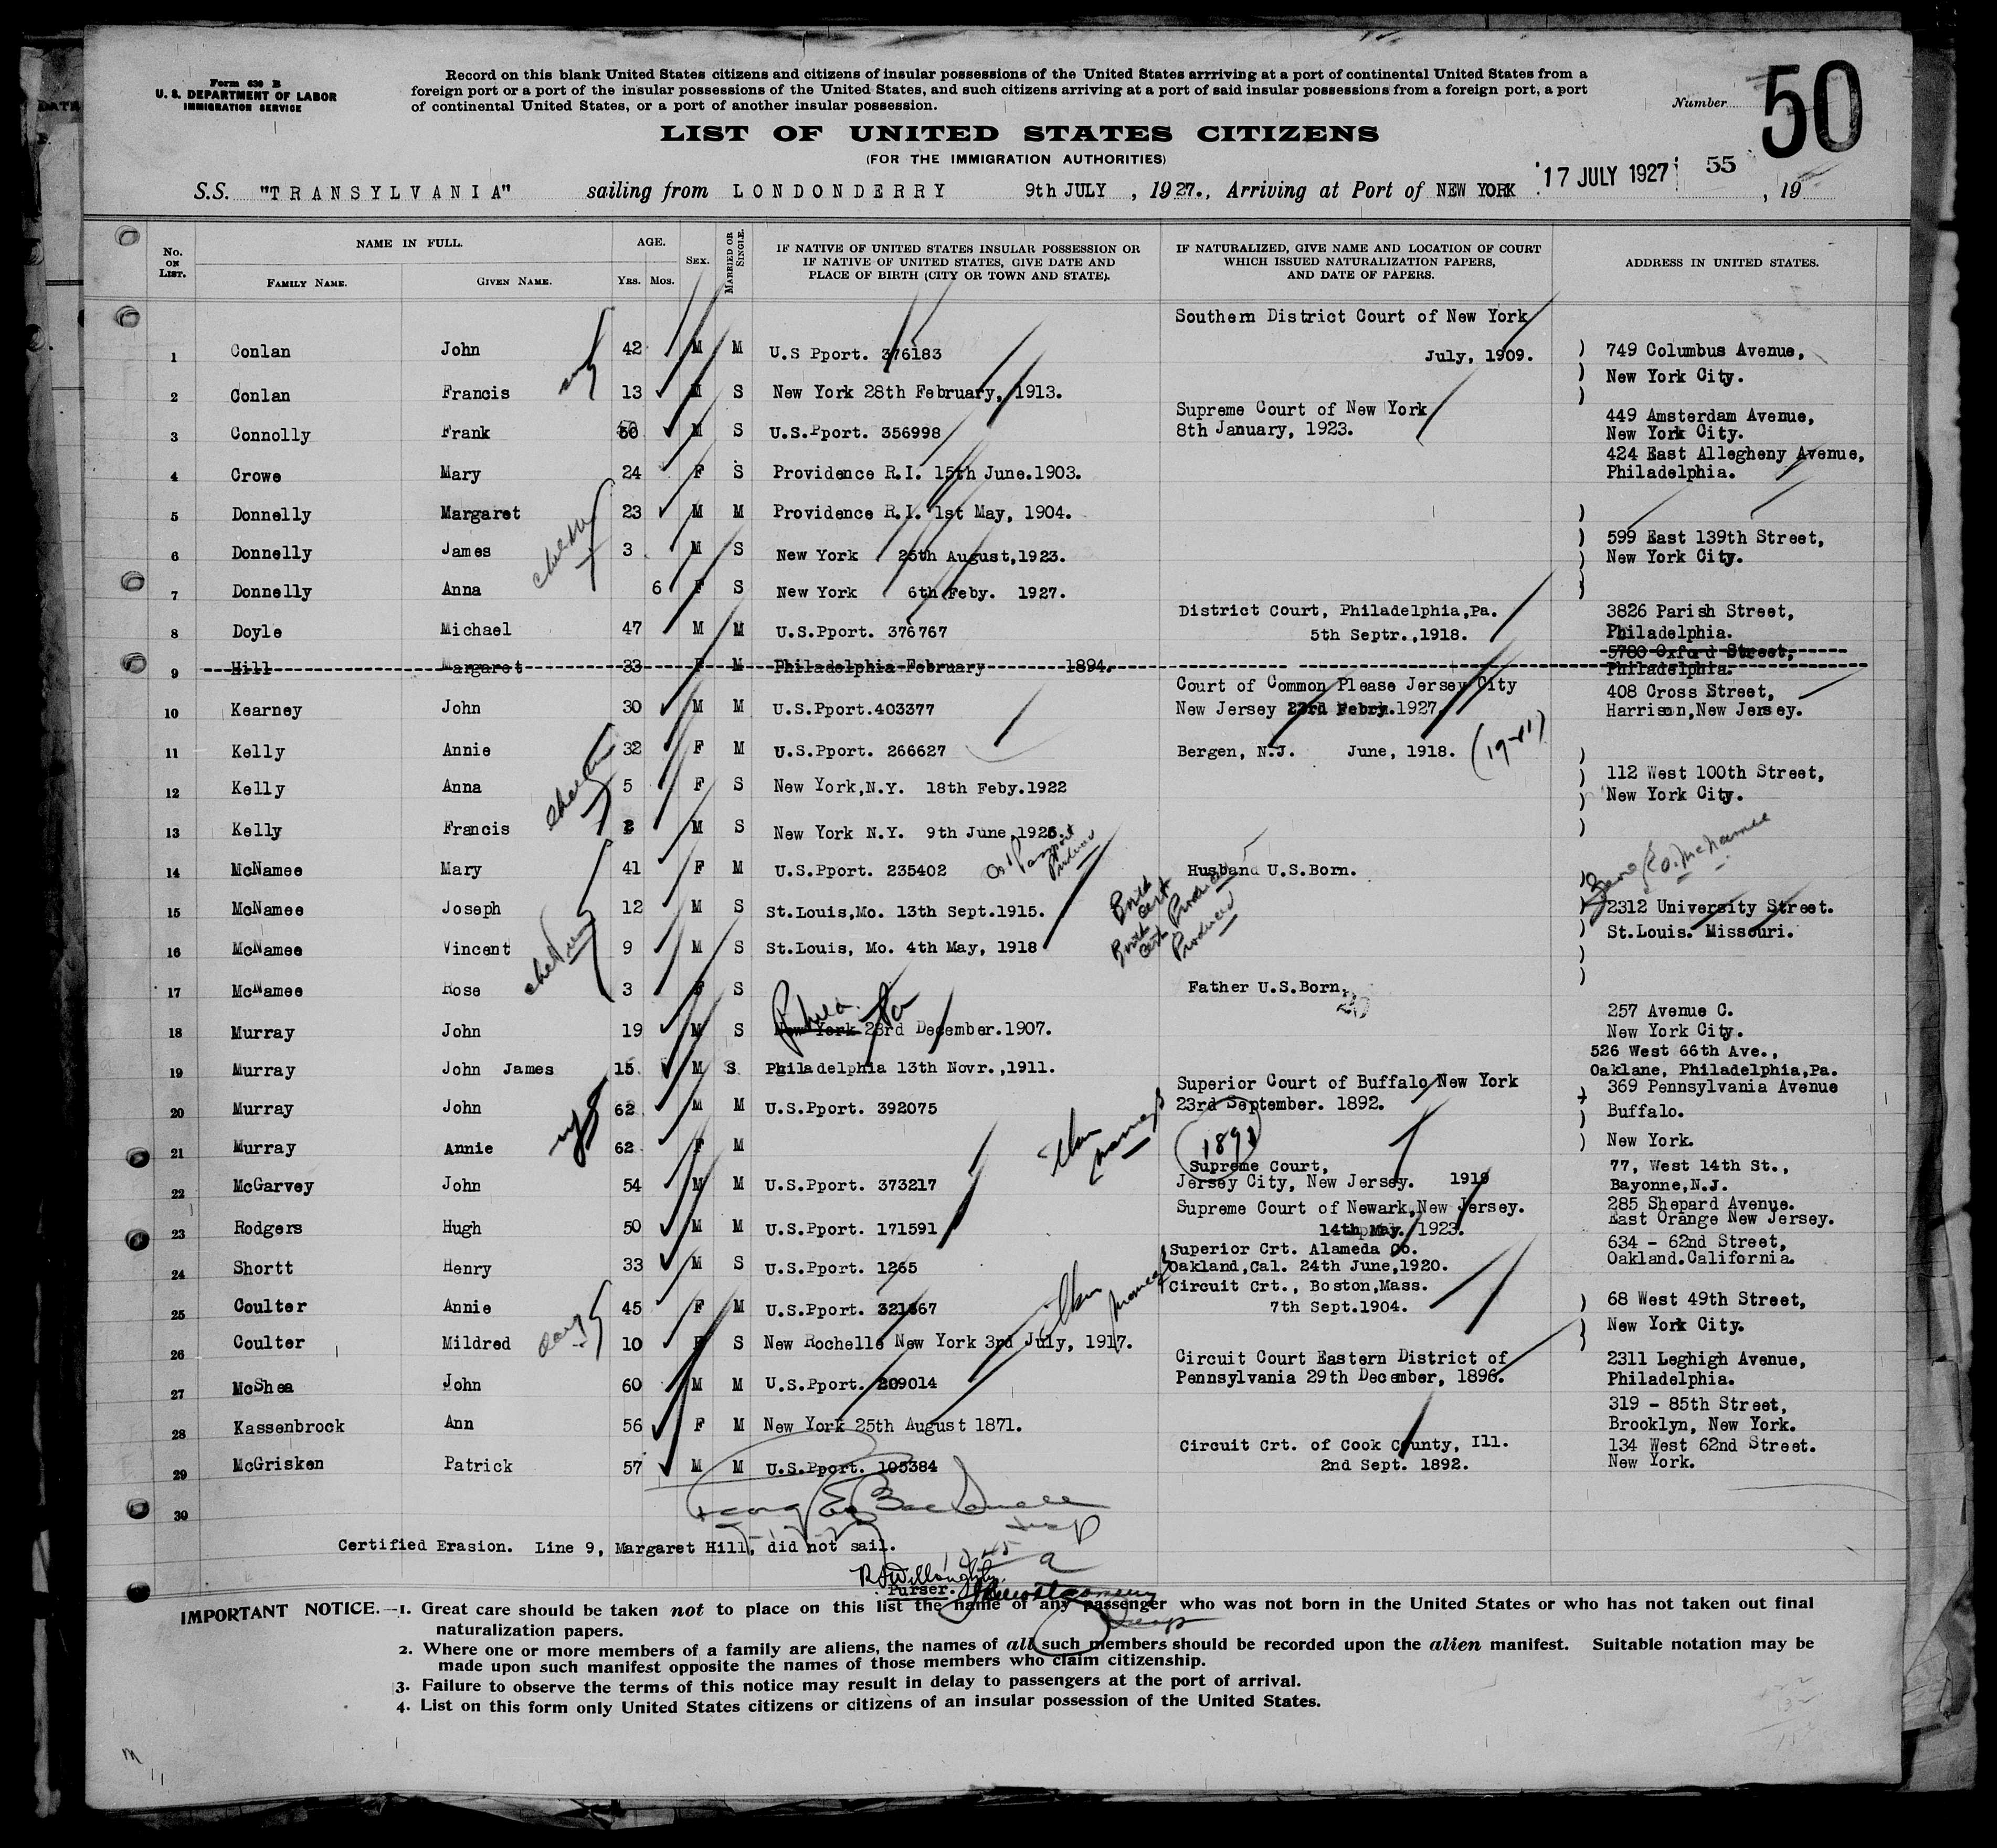 Form 630 B
U. S. DEPARTMENT OF LABOR
IMMIGRATION SERVICE
Record on this blank United States citizens and citizens of insular possessions of the United States arrriving at a port of continental United States from a
foreign port or a port of the insular possessions of the United States, and such citizens arriving at a port of said insular possessions from a foreign port, a port
of continental United States, or a port of another insular possession.
Number 50
LIST OF UNITED STATES CITIZENS
(FOR THE IMMIGRATION AUTHORITIES)
S.S. "TRANSYLVANIA" sailing from LONDONDERRY 9th JULY , 1927., Arriving at Port of NEW YORK 17 JULY 1927 55 , 19
No. ON LIST. NAME IN FULL. FAMILY NAME. GIVEN NAME. AGE. Yrs. Mos. SEX. MARRIED OR SINGLE. IF NATIVE OF UNITED STATES INSULAR POSSESSION OR IF NATIVE OF UNITED STATES, GIVE DATE AND PLACE OF BIRTH (CITY OR TOWN AND STATE). IF NATURALIZED, GIVE NAME AND LOCATION OF COURT WHICH ISSUED NATURALIZATION PAPERS, AND DATE OF PAPERS. ADDRESS IN UNITED STATES.
Southern District Court of New York
1 Conlan John 42 M M U.S Pport. 376183 July, 1909. ) 749 Columbus Avenue,
) New York City.
2 Conlan Francis 13 M S New York 28th February, 1913. )
Supreme Court of New York 449 Amsterdam Avenue,
3 Connolly Frank 50 M S U.S.Pport. 356998 8th January, 1923. New York City.
424 East Allegheny Avenue,
4 Crowe Mary 24 F S Providence R.I. 15th June.1903. Philadelphia.
5 Donnelly Margaret 23 M M Providence R.I. 1st May, 1904. )
) 599 East 139th Street,
6 Donnelly James 3 M S New York 25th August,1923. ) New York City.
7 Donnelly Anna 6 F S New York 6th Feby. 1927. )
District Court, Philadelphia,Pa. 3826 Parish Street,
8 Doyle Michael 47 M M U.S.Pport. 376767 5th Septr.,1918. Philadelphia.
5780 Oxford Street,
9 Hill Margaret 33 F M Philadelphia February 1894. Philadelphia.
Court of Common Please Jersey City 408 Cross Street,
10 Kearney John 30 M M U.S.Pport.403377 New Jersey 23rd Febry.1927 Harrison,New Jersey.
11 Kelly Annie 32 F M U.S.Pport. 266627 Bergen, N.J. June, 1918. )
) 112 West 100th Street,
12 Kelly Anna 5 F S New York,N.Y. 18th Feby.1922 ) New York City.
13 Kelly Francis 2 M S New York N.Y. 9th June,1925. )
Passport
Produced
14 McNamee Mary 41 F M U.S.Pport. 235402 Husband U.S.Born. )
Birth
Cert
Produced
15 McNamee Joseph 12 M S St.Louis,Mo. 13th Sept.1915. ) 2312 University Street.
Birth
Cert
Produced
) St.Louis. Missouri.
16 McNamee Vincent 9 M S St.Louis, Mo. 4th May, 1918 )
17 McNamee Rose 3 F S Father U.S.Born. )
Phila. Pa
257 Avenue C.
18 Murray John 19 M S New York 23rd December.1907. New York City.
526 West 66th Ave.,
19 Murray John James 15 M S Philadelphia 13th Novr.,1911. Oaklane, Philadelphia,Pa.
Superior Court of Buffalo New York 369 Pennsylvania Avenue
20 Murray John 62 M M U.S.Pport. 392075 23rd September. 1892. ) Buffalo.
21 Murray Annie 62 F M ) New York.
Supreme Court, 77, West 14th St.,
22 McGarvey John 54 M M U.S.Pport. 373217 Jersey City, New Jersey. 1919 Bayonne,N.J.
Supreme Court of Newark,New Jersey. 285 Shepard Avenue.
23 Rodgers Hugh 50 M M U.S.Pport. 171591 14th May. 1923. East Orange New Jersey.
Superior Crt. Alameda Co. 634 - 62nd Street,
24 Shortt Henry 33 M S U.S.Pport. 1265 Oakland,Cal. 24th June,1920. Oakland.California.
Circuit Crt., Boston,Mass.
25 Coulter Annie 45 F M U.S.Pport. 321367 7th Sept.1904. ) 68 West 49th Street,
) New York City.
26 Coulter Mildred 10 F S New Rochelle New York 3rd July, 1917. )
Circuit Court Eastern District of 2311 Leghigh Avenue,
27 McShea John 60 M M U.S.Pport. 209014 Pennsylvania 29th December, 1896. Philadelphia.
319 - 85th Street,
28 Kassenbrock Ann 56 F M New York 25th August 1871. Brooklyn, New York.
Circuit Crt. of Cook County, Ill. 134 West 62nd Street.
29 McGrisken Patrick 57 M M U.S.Pport. 105384 2nd Sept. 1892. New York.
30
Certified Erasion. Line 9, Margaret Hill, did not sail.
Purser.
IMPORTANT NOTICE.—1. Great care should be taken not to place on this list the name of any passenger who was not born in the United States or who has not taken out final
naturalization papers.
2. Where one or more members of a family are aliens, the names of all such members should be recorded upon the alien manifest. Suitable notation may be
made upon such manifest opposite the names of those members who claim citizenship.
3. Failure to observe the terms of this notice may result in delay to passengers at the port of arrival.
4. List on this form only United States citizens or citizens of an insular possession of the United States.